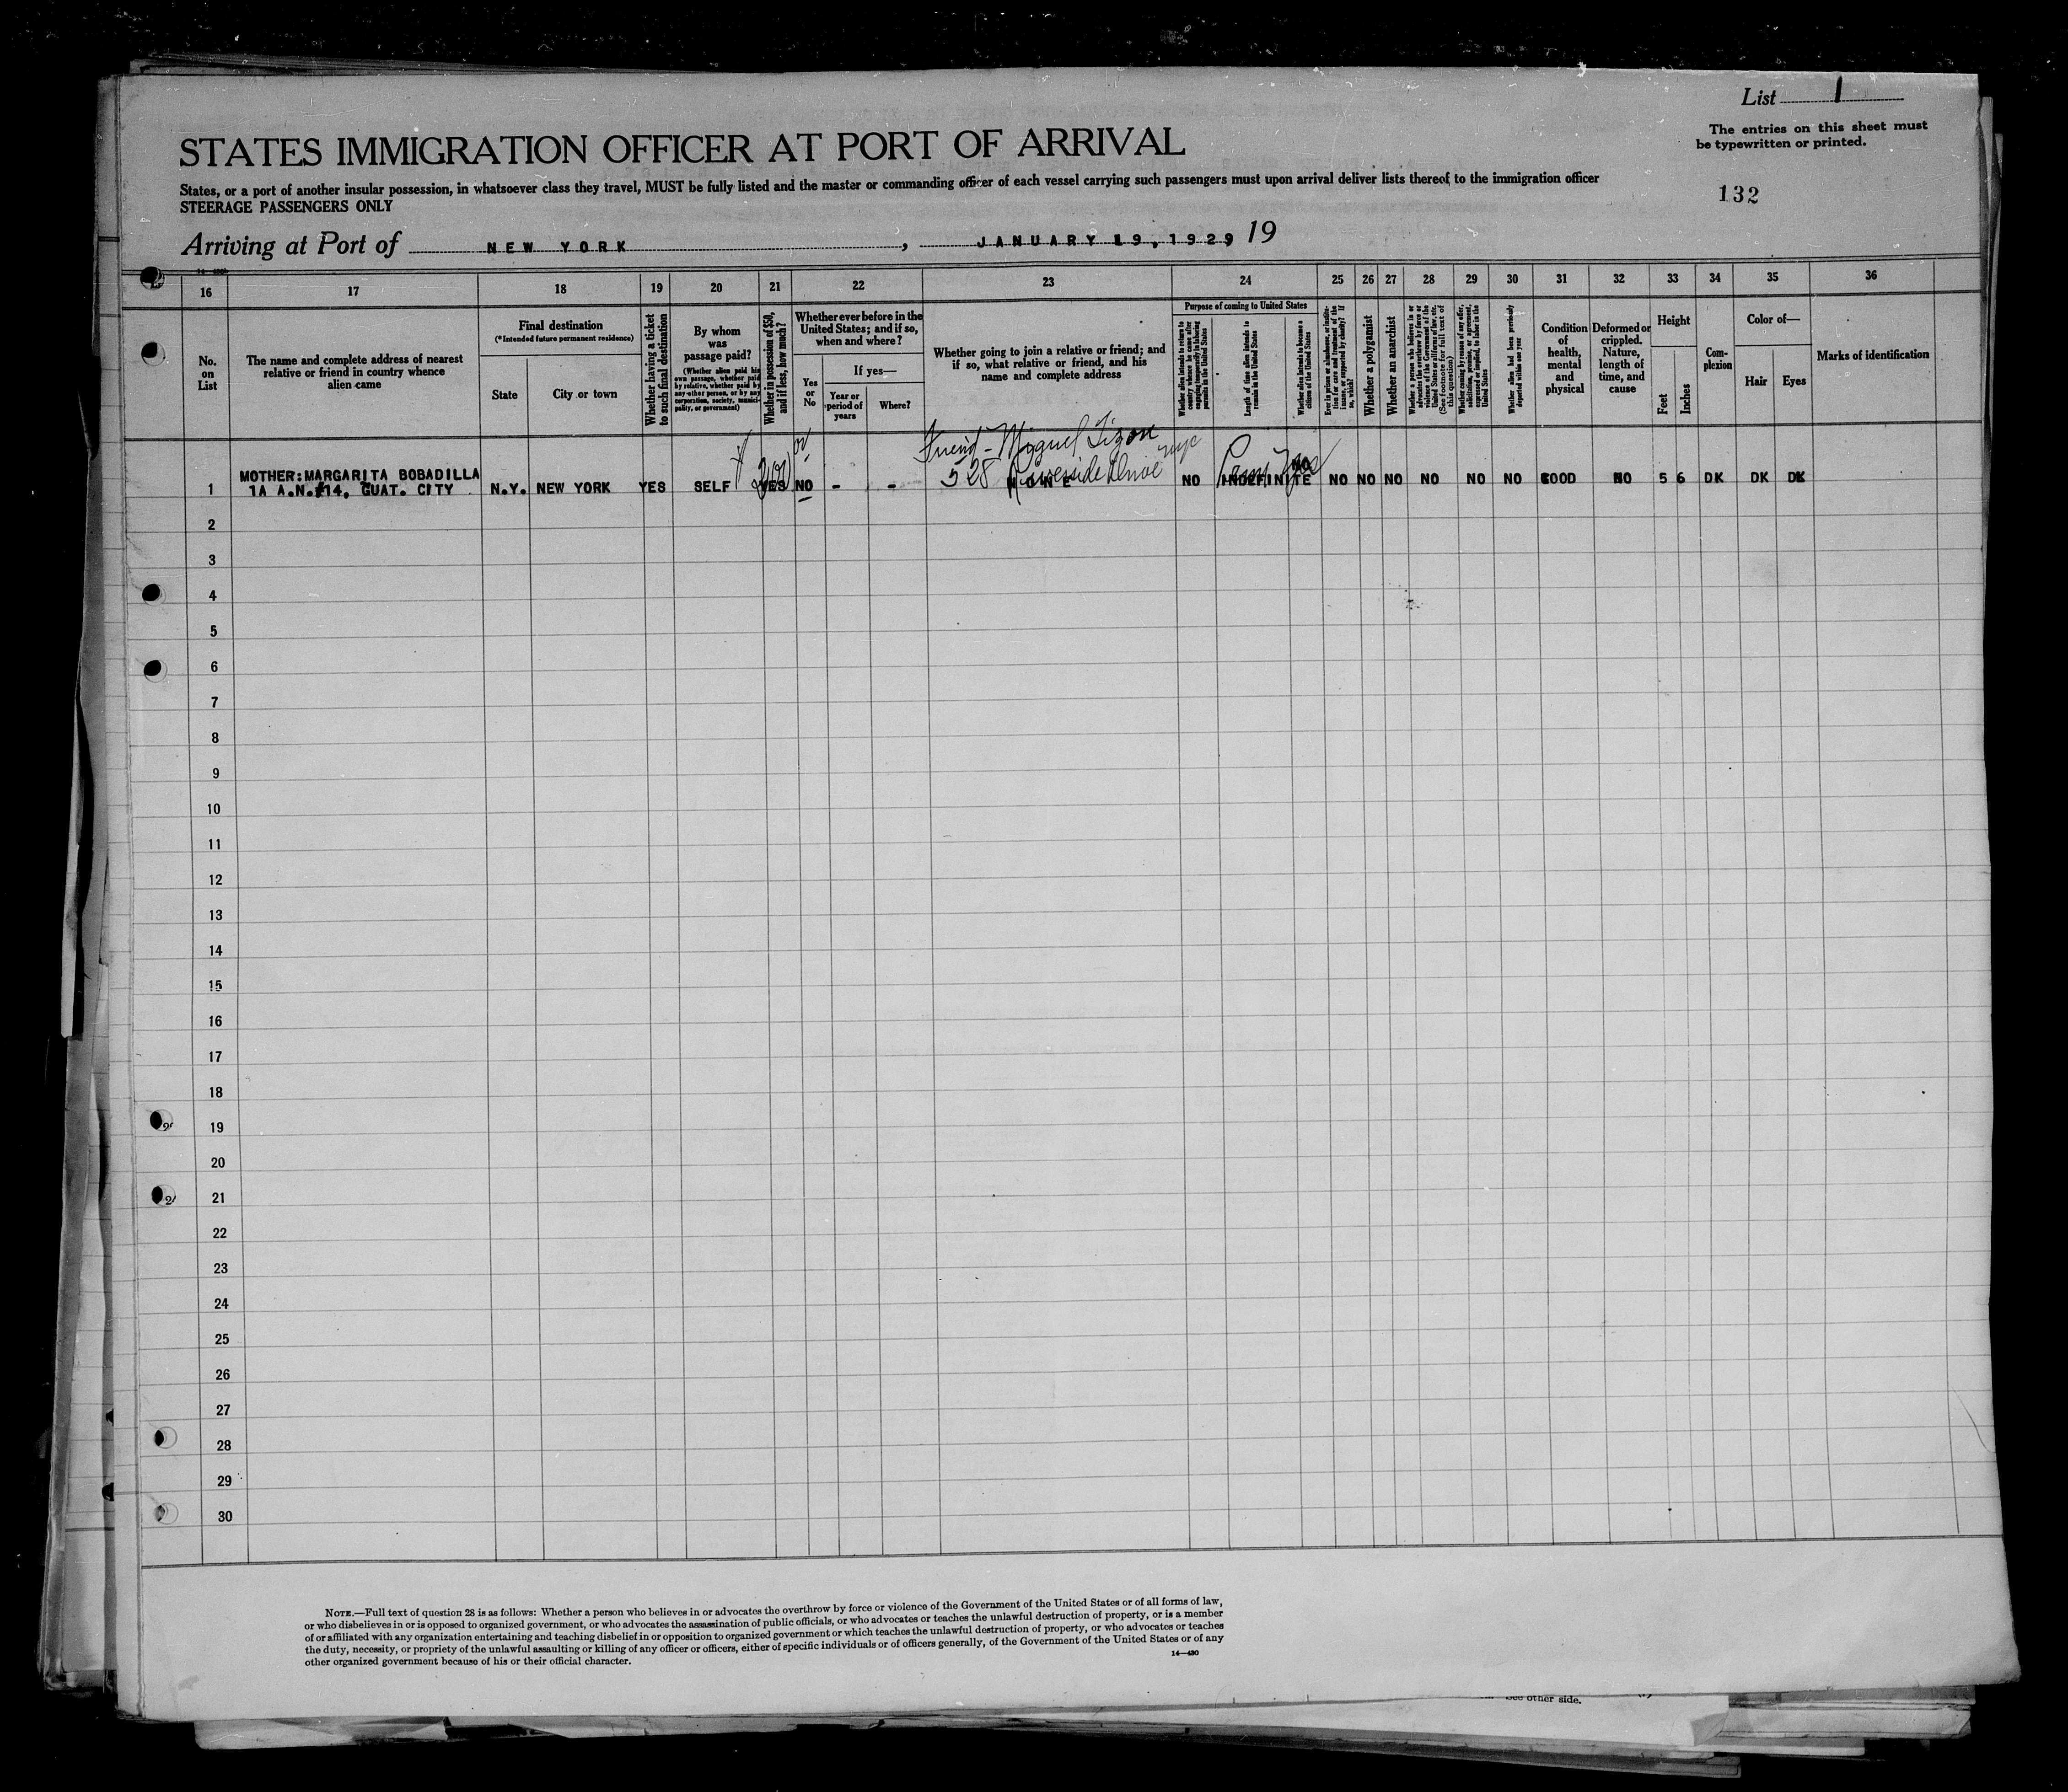 List 1
The entries on this sheet must
be typewritten or printed.
132
STATES IMMIGRATION OFFICER AT PORT OF ARRIVAL
States, or a port of another insular possession, in whatsoever class they travel, MUST be fully listed and the master or commanding officer of each vessel carrying such passengers must upon arrival deliver lists thereof to the immigration officer
STEERAGE PASSENGERS ONLY
Arriving at Port of NEW YORK, JANUARY 19, 1929, 19
16 17 18 19 20 21 22 23 24 25 26 27 28 29 30 31 32 33 34 35 36
No.
on
List
The name and complete address of nearest
relative or friend in country whence
alien came
Final destination
(*Intended future permanent residence)
State
City or town
Whether having a ticket
to such final destination
By whom
was
passage paid?
(Whether alien paid his
own passage, whether paid
by relative, whether paid by
any other person, or by any
corporation, society, munici-
pality, or government)
Whether in possession of $50,
and if less, how much?
Whether ever before in the
United States; and if so,
when and where?
Yes
or
No
If yes—
Year or
period of
years
Where?
Whether going to join a relative or friend; and
if so, what relative or friend, and his
name and complete address
Purpose of coming to United States
Whether alien intends to return to
country whence he came after
engaging temporarily in laboring
pursuits in the United States
Length of time alien intends to
remain in the United States
Whether alien intends to become a
citizen of the United States
Ever in prison or almshouse, or institu-
tion for care and treatment of the
insane, or supported by charity? If
so, which?
Whether a polygamist
Whether an anarchist
Whether a person who believes in or
advocates the overthrow by force or
violence of the Government of the
United States or all forms of law, etc.
(See footnote for full text of
this question)
Whether coming by reason of any offer,
solicitation, promise, or agreement,
expressed or implied, to labor in the
United States
Whether alien had been previously
deported within one year
Condition
of
health,
mental
and
physical
Deformed or
crippled.
Nature,
length of
time, and
cause
Height
Feet
Inches
Com-
plexion
Color of—
Hair
Eyes
Marks of identification
Friend - Miguel
528 Riverside Drive nyc
MOTHER: MARGARITA BOBADILLA
1 1A A.N. #14, GUAT. CITY N.Y. NEW YORK YES SELF YES NO - - NONE NO INDEFINITE NO NO NO NO NO NO NO GOOD NO 5 6 DK DK DK
Perm Yes
2
3
4
5
6
7
8
9
10
11
12
13
14
15
16
17
18
19
20
21
22
23
24
25
26
27
28
29
30
NOTE.—Full text of question 28 is as follows: Whether a person who believes in or advocates the overthrow by force or violence of the Government of the United States or of all forms of law,
or who disbelieves in or is opposed to organized government, or who advocates the assassination of public officials, or who advocates or teaches the unlawful destruction of property, or is a member
of or affiliated with any organization entertaining and teaching disbelief in or opposition to organized government or which teaches the unlawful destruction of property, or who advocates or teaches
the duty, necessity, or propriety of the unlawful assaulting or killing of any officer or officers, either of specific individuals or of officers generally, of the Government of the United States or of any
other organized government because of his or their official character.
14—430
See other side.